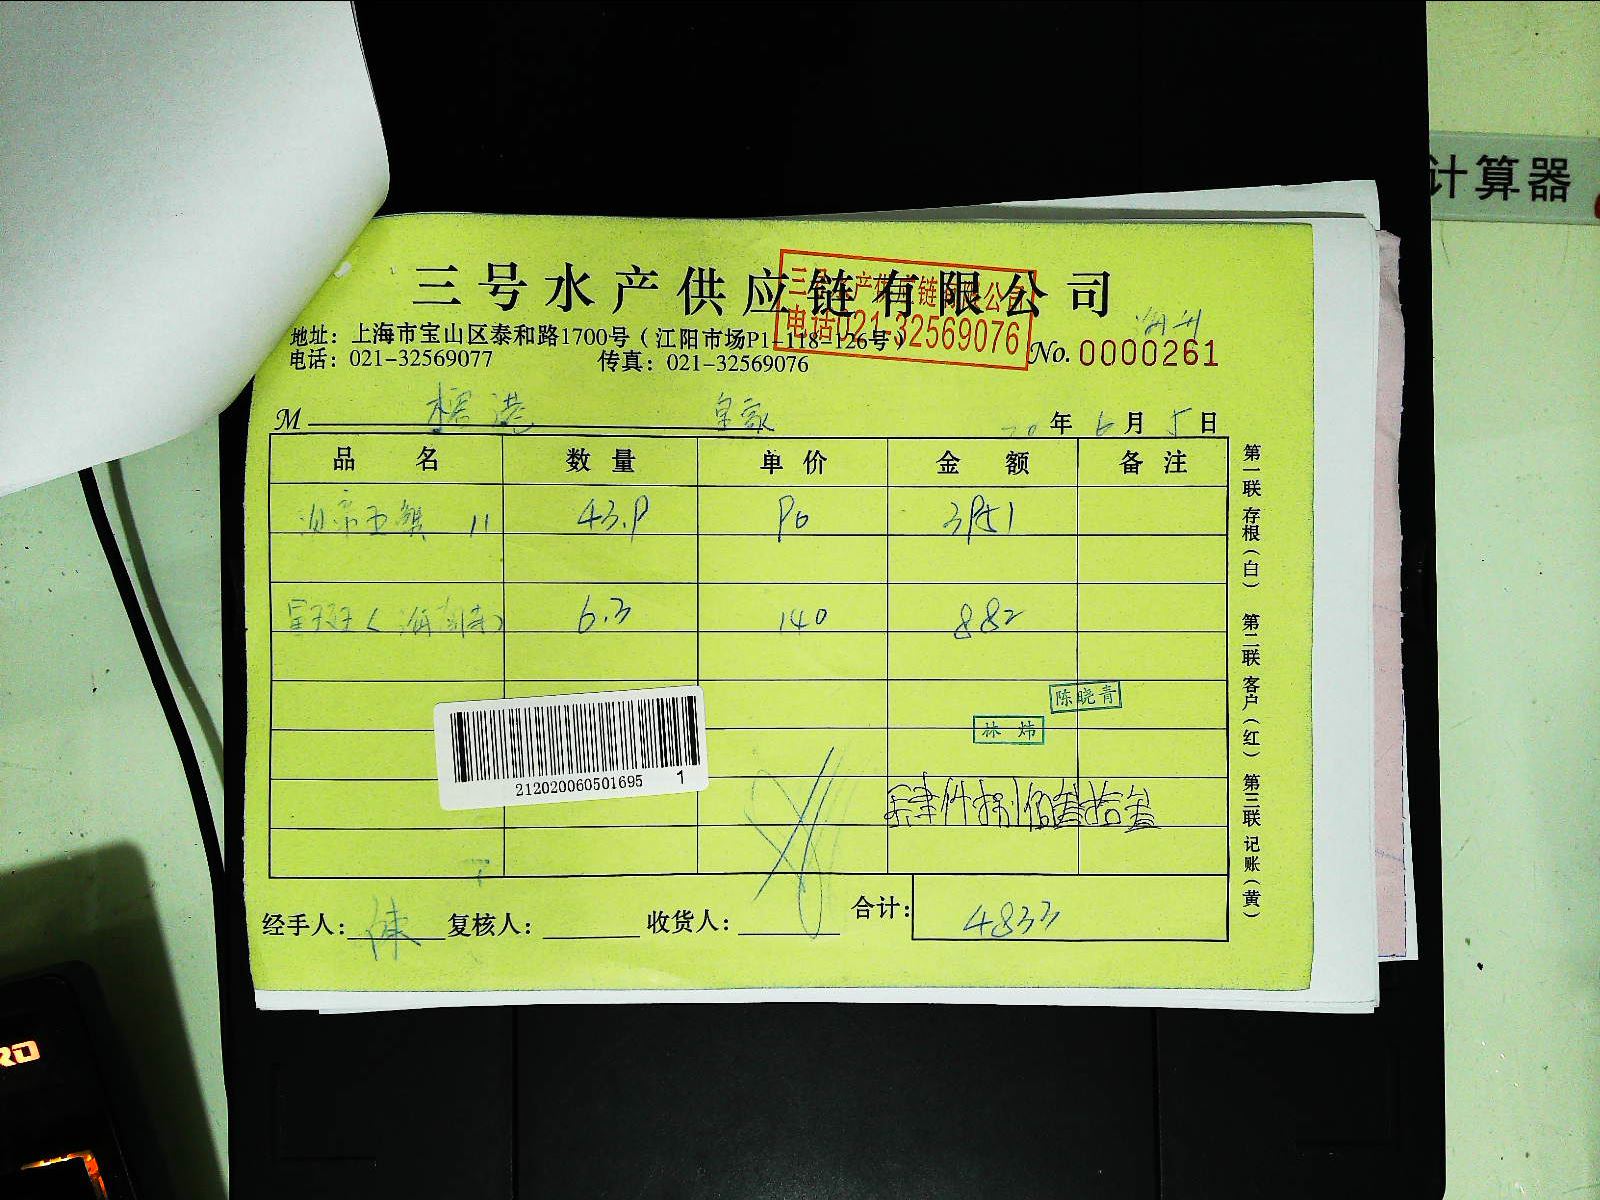 计算器
三号水产供应链有限公司
三号水产供应链有限公司
电话021-32569076
地址：上海市宝山区泰和路1700号（江阳市场P1-118-126号）
电话：021-32569077 传真：021-32569076
No. 0000261
M 港 皇家 20年6月5日
品名 数量 单价 金额 备注
11 43.9 90 3951
星斑（海南） 6.3 140 882
陈晓青
林炜
212020060501695 1
肆仟捌佰叁拾叁
经手人：陈 复核人： 收货人： 合计：4833
第一联 存根（白） 第二联 客户（红） 第三联 记账（黄）
RO